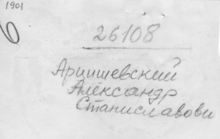 1901
26108
Арцишевский
Александр
Станиславови